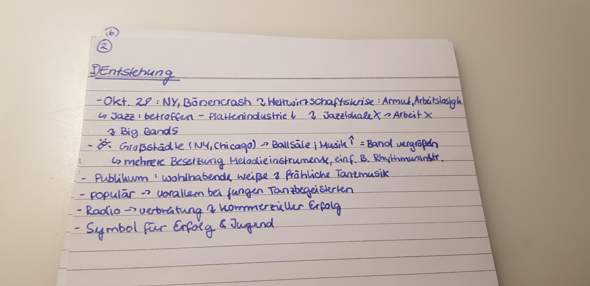 (b)
②
1) Entstehung
- Okt. 29: NY, Börsencrash & Weltwirtschaftskrise: Armut, Arbeitslosigk.
↳ Jazz: betroffen - Plattenindustrie ↓ & Jazzlokale X → Arbeit X
& Big Bands
- Großstädte (NY, Chicago) → Ballsäle, Musik ↑ = Band vergrößern
↳ mehrere Besetzung Melodieinstrumente, einf. B. Rhythmusinstr.
- Publikum: wohlhabende weiße & fröhliche Tanzmusik
- populär → vorallem bei jungen Tanzbegeisterten
- Radio → verbreitung & kommerzieller Erfolg
- Symbol für Erfolg & Jugend